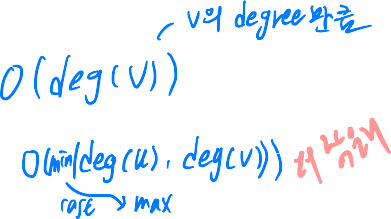 v의 degree 만큼
O(deg(v))
O(min(deg(u), deg(v))) 더 작을때
max